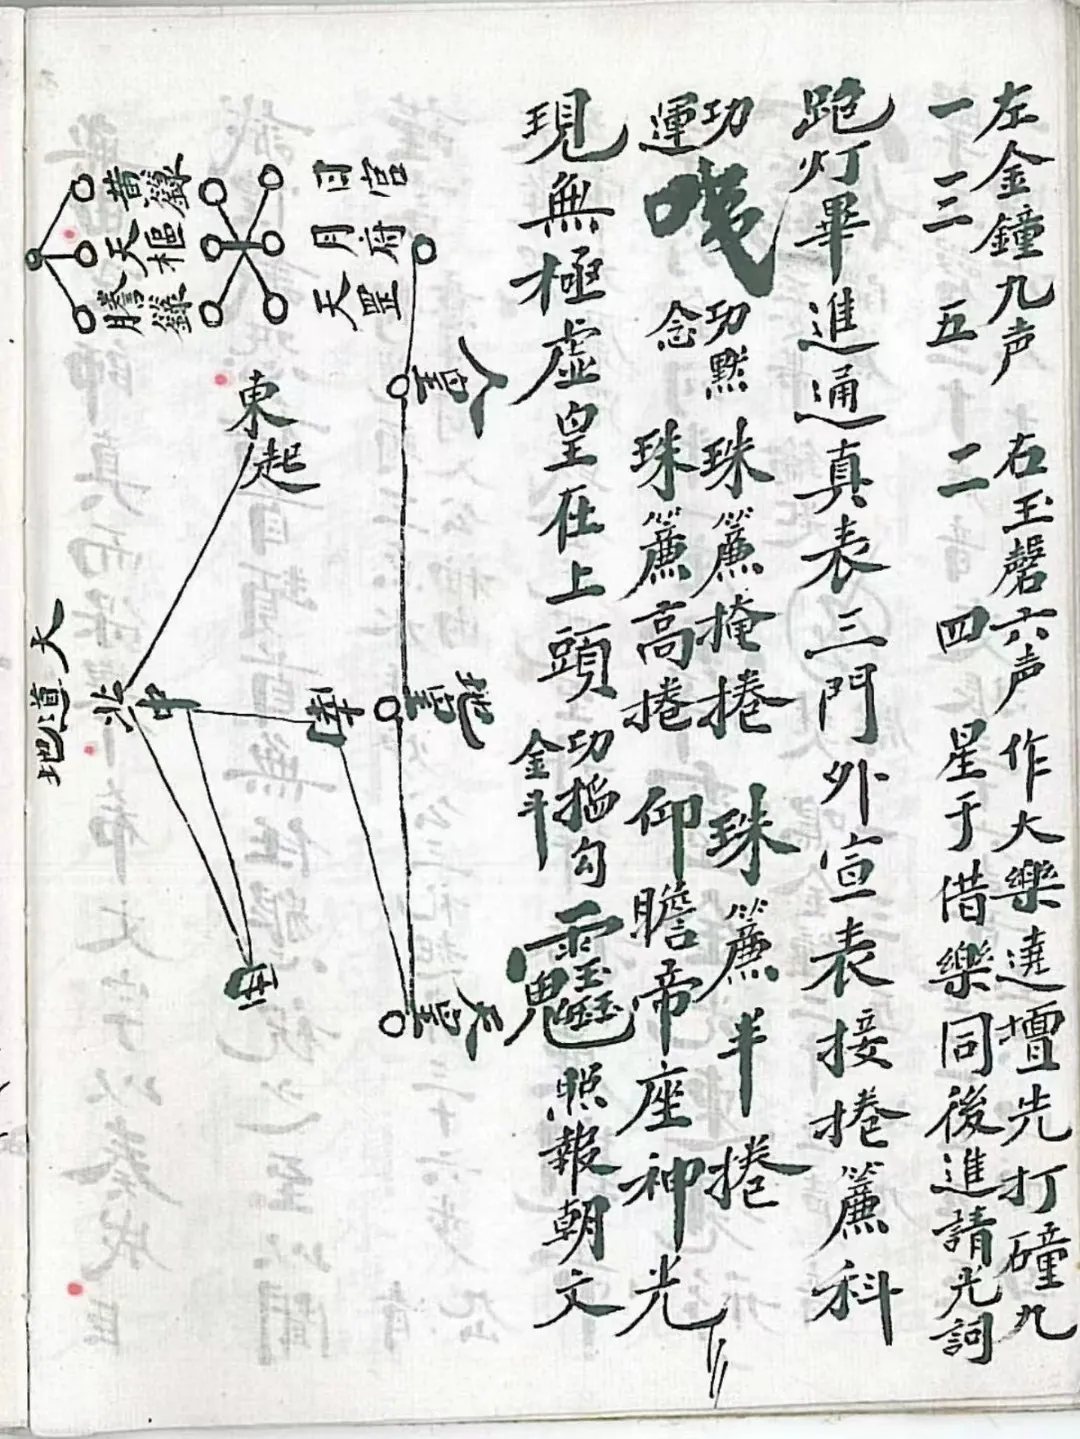 左金鐘九声　右玉磬六声　作大樂遶壇先打確九
一 二三 五　二 四　星于借樂同後進請光詞
跪灯畢進通真表三門外宣表接捲簾科
功運
功默念　珠簾掩捲　珠簾半捲
珠簾高捲　仰瞻帝座神光
現無極虛皇在上頭　功掐勾金斗　照報朝文
日宮
月府
天罡
黄籙
天樞
東起
北 中
天
地道